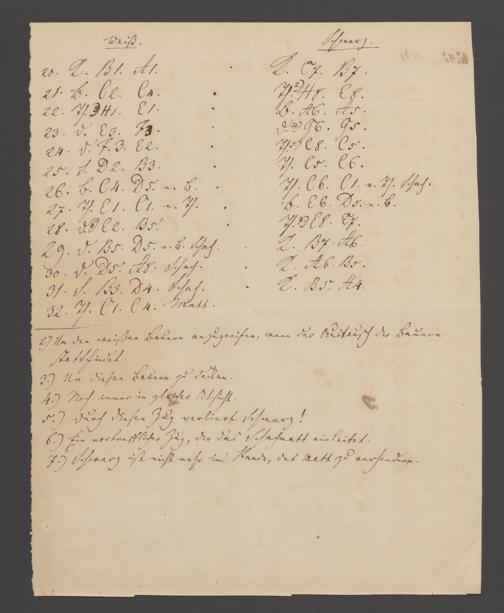 Weiß. Schwarz.
20. K. B1. A1. K. C7. B7.
21. b. C2. C4. Th. H8. E8.
22. Th. H1. E1. b. A6. A5.
23. d. E3. F3. d. G6. G5.
24. d. F3. E2. Th. E8. C5.
25. S. D2. B3. Th. C5. C6.
26. b. C4. D5. n. b. Th. C6. C1. n. Th. Schach.
27. Th. E1. C1. n. Th. b. E6. D5. n. b.
28. d. E2. B5. Th. E8. E7.
29. d. B5. D5. n. b. Schach. K. B7. A6.
30. d. D5. A8. Schach. K. A6. B5.
31. S. B3. D4. Schach. K. B5. A4.
32. Th. C1. C4. Matt.
2) Um den weißen Bauern anzugreifen, wenn der Austausch der Bauern
stattfindet.
3.) Um diesen Bauern zu decken.
4.) Noch immer in gleicher Absicht.
5.) Durch diesen Zug verliert Schwarz!
6.) Ein vortrefflicher Zug, der das Schachmatt einleitet.
7.) Schwarz ist nicht mehr im Stande, das Matt zu verhindern.